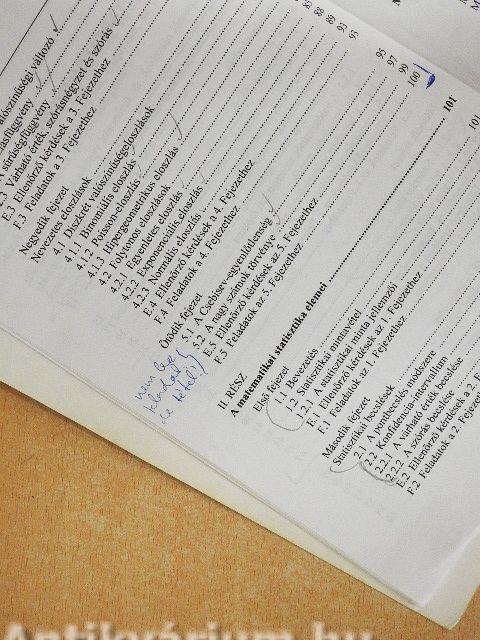 valószínűségi változó
sűrűségfüggvény
Várható érték, szórásnégyzet és szórás
E.3 Ellenőrző kérdések a 3. Fejezethez
F.3 Feladatok a 3. Fejezethez
Negyedik fejezet
Nevezetes eloszlások
4.1 Diszkrét valószínűségeloszlások
4.1.1 Binomiális eloszlás
4.1.2 Poisson-eloszlás
4.1.3 Hipergeometrikus eloszlás
4.2 Folytonos eloszlások
4.2.1 Egyenletes eloszlás
4.2.2 Exponenciális eloszlás
4.2.3 Normális eloszlás
E.4 Ellenőrző kérdések a 4. Fejezethez
F.4 Feladatok a 4. Fejezethez
Ötödik fejezet
5.1 A Csebisev-egyenlőtlenség
5.2 A nagy számok törvénye
E.5 Ellenőrző kérdések az 5. Fejezethez
F.5 Feladatok az 5. Fejezethez
88
89
93
93
95
97
99
100
nem lesz
feladat,
de tétel!
II. RÉSZ
A matematikai statisztika elemei 101
Első fejezet
1.1 Bevezetés
1.2 Statisztikai mintavétel
1.2.1 A statisztikai minta jellemzői
E.1 Ellenőrző kérdések az 1. Fejezethez
F.1 Feladatok az 1. Fejezethez
Második fejezet
Statisztikai becslések
2.1 A pontbecslés módszere
2.2 Konfidencia-intervallum
2.2.1 A várható érték becslése
2.2.2 A szórás becslése
E.2 Ellenőrző kérdések a 2. F
F.2 Feladatok a 2. Fejezet
Antikvárium.hu